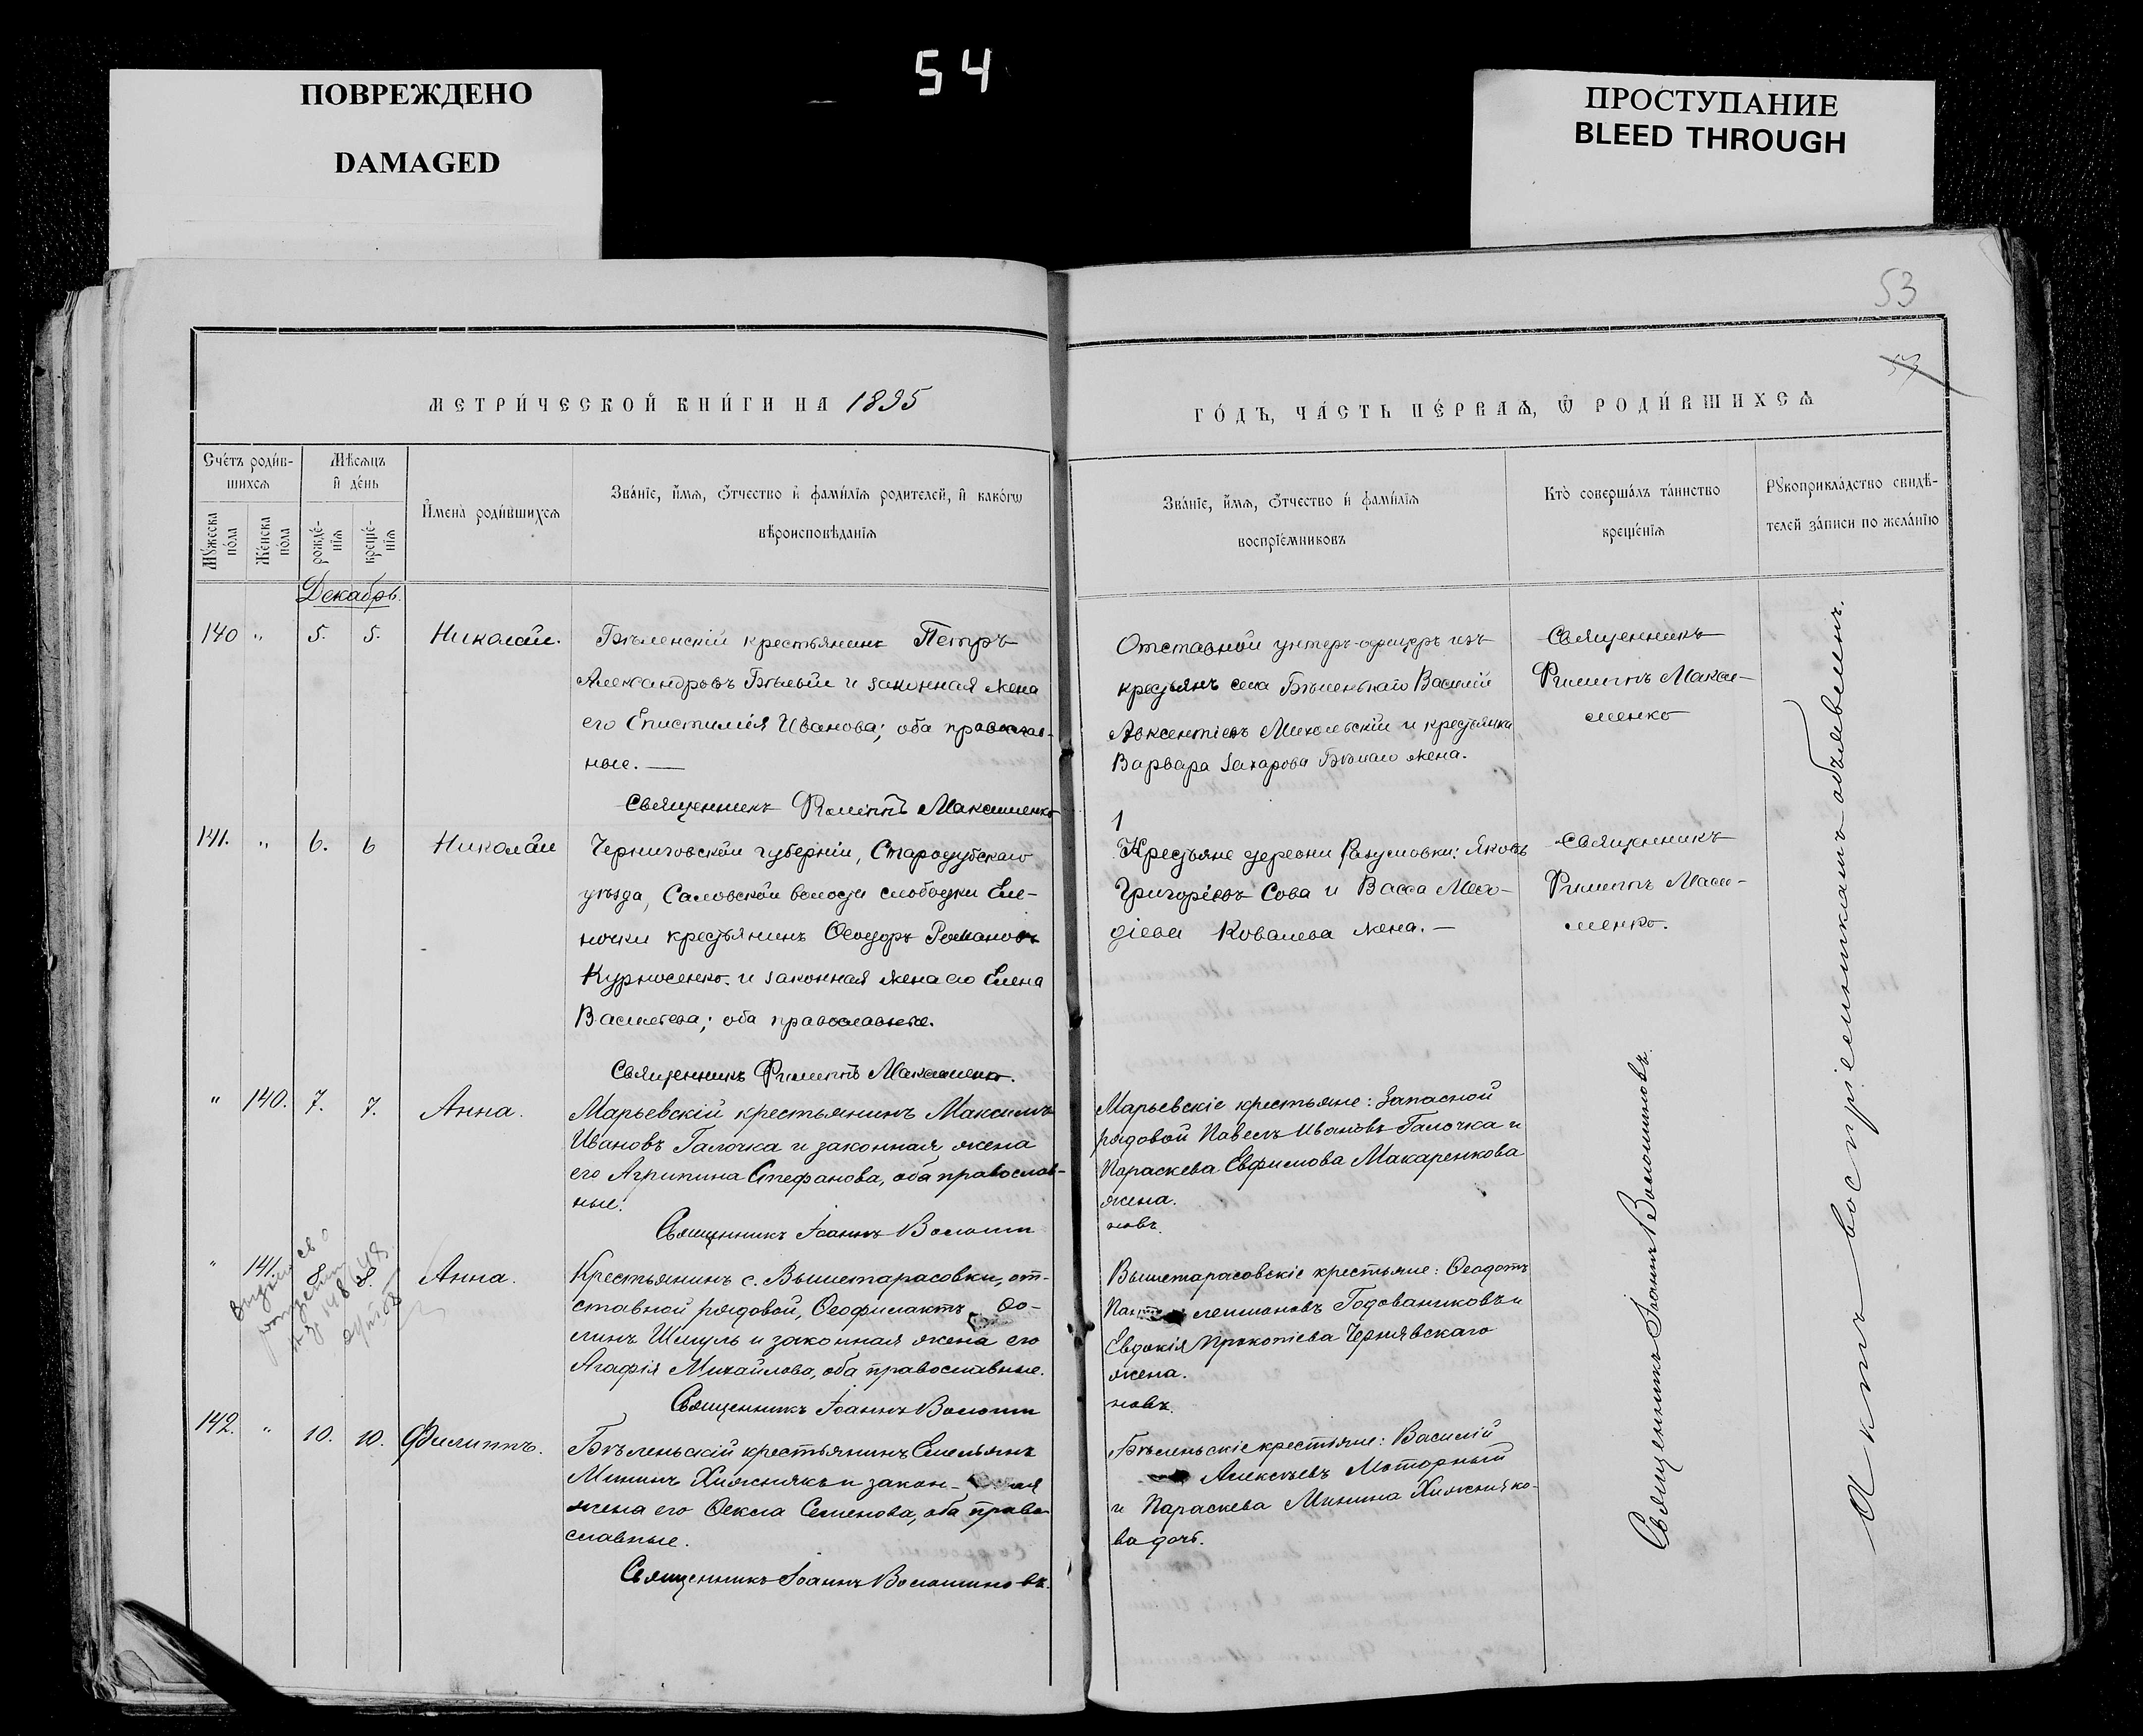 ПОВРЕЖДЕНО
DAMAGED
54
ПРОСТУПАНИЕ
BLEED THROUGH
53
МЕТРИ́ЧЕСКОЙ КНИ́ГИ НА 1895
ГО́ДЪ, ЧА́СТЬ ПЕ́РВАѦ, Ѽ РОДИ́ВШИХСѦ
Сче́тъ роди́в-
шихсѧ
Мѣ́сѧцъ
и҆ де́нь
Мꙋ́жеска по́ла
Же́нска по́ла
рожде́-нїѧ
креще́-нїѧ
И҆мена̀ роди́вшихсѧ
Зва́нїе, и҆́мѧ, ѻ҆́тчество и҆ фами́лїѧ родителей, и҆ како́гѡ
вѣроисповѣ́данїѧ
Зва́нїе, и҆́мѧ, ѻ҆́тчество и҆ фами́лїѧ
воспрїе́мниковъ
Кто̀ соверша́лъ та́инство
креще́нїѧ
Рꙋкоприкла́дство свидѣ́-
телей за́писи по жела́нїю
Декабрь.
140 " 5. 5. Николай.
Бѣленскій крестьянинъ Петръ
Александровъ Бѣлый и законная жена
его Епистимія Иванова; оба православ-
ные. —
Священникъ Филиппъ Максименко
Отставной унтеръ-офицеръ изъ
крестьянъ села Бѣленькаго Василій
Авксентіевъ Михолевскій и крестьянка
Варвара Захарова Бѣлаго жена.
Священникъ
Филиппъ Макси-
менко
141. " 6. 6 Николай
Черниговской губерніи, Стародубскаго
уѣзда, Саловской волости слободки Еле-
ночки крестьянинъ Ѳеодоръ Романовъ
Курносенко и законная жена его Елена
Васильева; оба православные.
Священникъ Филиппъ Максименко.
1
Крестьяне деревни Разумовки: Яковъ
Григоріевъ Сова и Васса
Ковалева жена. —
Священникъ
Филиппъ Макси-
менко.
" 140. 7. 7. Анна.
Марьевскій крестьянинъ Максимъ
Ивановъ Галочка и законная жена
его Агрипина Стефанова, оба православ-
ные.
Священникъ Іоаннъ Волоши
Марьевскіе крестьяне: Запасной
рядовой Павелъ Ивановъ Галочка и
Параскева Евфимова Макаренкова
жена.
новъ.
" 141. 8. 8. Анна.
Крестьянинъ с. Вышетарасовки, от-
ставной рядовой, Ѳеофилактъ Ѳо-
минъ Шмуль и законная жена его
Агафія Михайлова, оба православные.
Священникъ Іоаннъ Волоши
Вышетарасовскіе крестьяне: Ѳеодотъ
лемоновъ Годованиковъ и
Евдокія Прокопіева Чернявскаго
жена.
новъ.
142. " 10. 10. Филиппъ.
Бѣленьскій крестьянинъ Емельянъ
Мининъ Хижнякъ и закон- ная
жена его Ѳекла Семенова, оба право-
славные.
Священникъ Іоаннъ Волошиновъ.
Бѣленьскіе крестьяне: Василій
Алексѣевъ Моторный
и Параскева Минина Хижняко-
ва дочь.
Священникъ Іоаннъ Волошиновъ.
Актъ воспріемникамъ объявленъ.